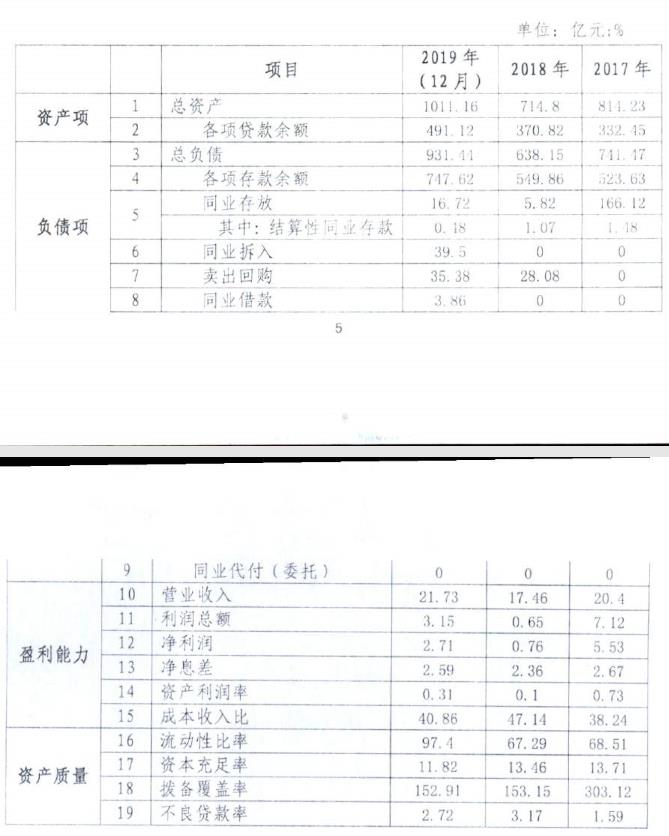 单位：亿元:%
项目 2019年(12月) 2018年 2017年
资产项 1 总资产 1011.16 714.8 814.23
2 各项贷款余额 491.12 370.82 332.45
负债项 3 总负债 931.41 638.15 741.47
4 各项存款余额 747.62 549.86 523.63
5 同业存放 16.72 5.82 166.12
其中：结算性同业存款 0.18 1.07 1.18
6 同业拆入 39.5 0 0
7 卖出回购 35.38 28.08 0
8 同业借款 3.86 0 0
5
9 同业代付（委托） 0 0 0
盈利能力 10 营业收入 21.73 17.46 20.4
11 利润总额 3.15 0.65 7.12
12 净利润 2.71 0.76 5.53
13 净息差 2.59 2.36 2.67
14 资产利润率 0.31 0.1 0.73
15 成本收入比 40.86 47.14 38.24
资产质量 16 流动性比率 97.4 67.29 68.51
17 资本充足率 11.82 13.46 13.71
18 拨备覆盖率 152.91 153.15 303.12
19 不良贷款率 2.72 3.17 1.59